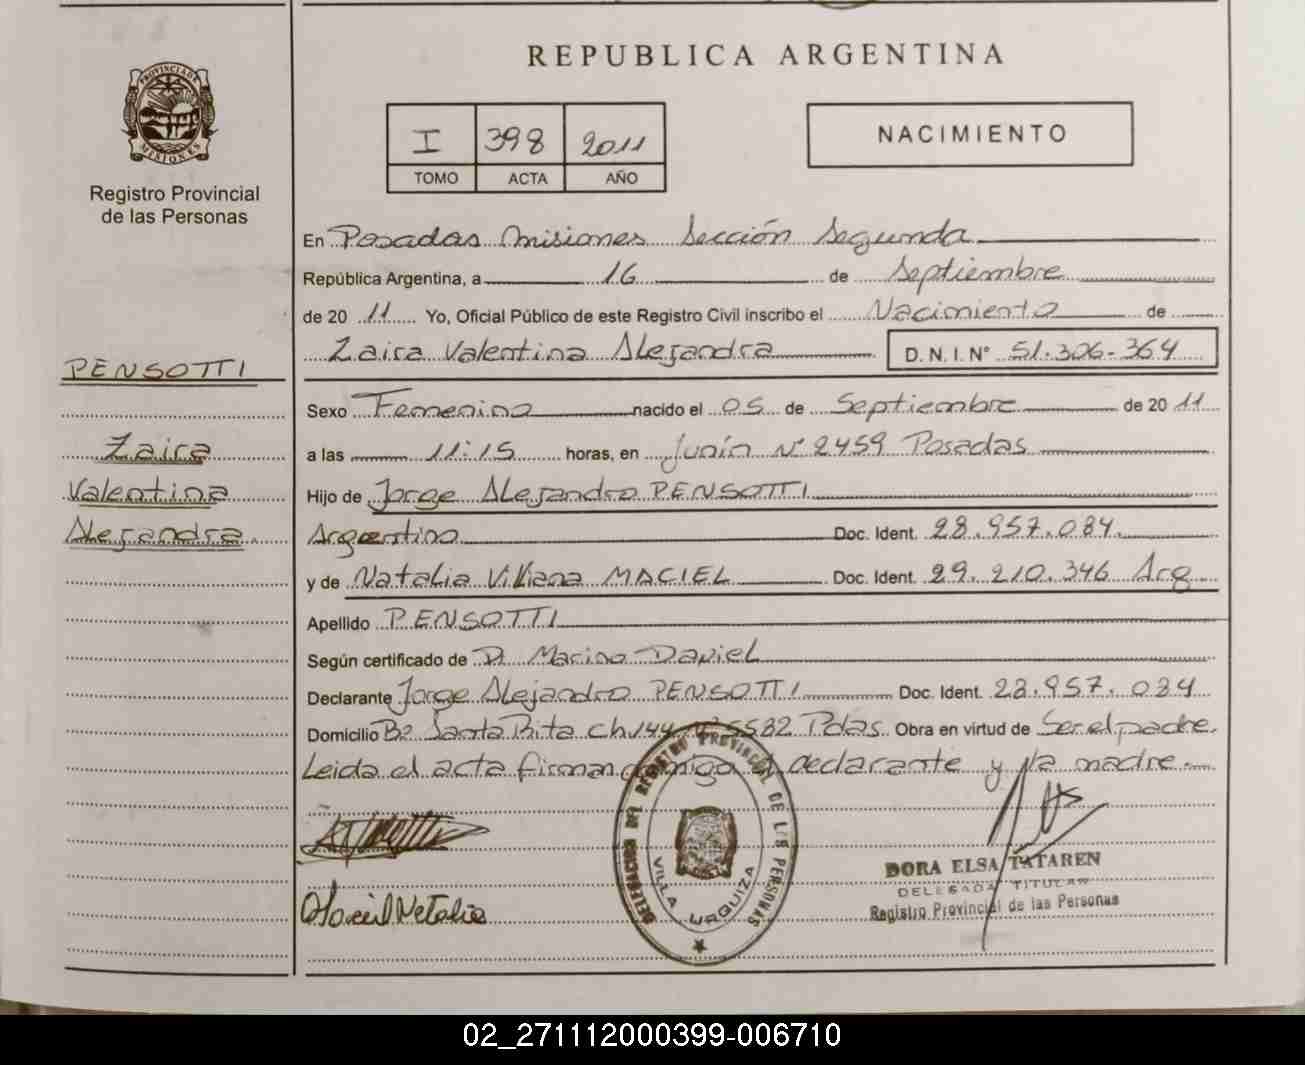 REPUBLICA ARGENTINA
PROVINCIA DE MISIONES
Registro Provincial
de las Personas
I 398 2011
TOMO ACTA AÑO
NACIMIENTO
En Posadas Misiones Sección Segunda
República Argentina, a 16 de Septiembre
de 2011 Yo, Oficial Público de este Registro Civil inscribo el Nacimiento de
Zaira Valentina Alejandra D. N. I. N° 51.306.364
PENSOTTI
Zaira
Valentina
Alejandra
Sexo Femenino nacido el 05 de Septiembre de 2011
a las 11:15 horas, en Junín N° 2459 Posadas
Hijo de Jorge Alejandro PENSOTTI
Argentino Doc. Ident. 28.957.084
y de Natalia Viviana MACIEL Doc. Ident. 29.210.346 Arg
Apellido PENSOTTI
Según certificado de Dr Marino Daniel
Declarante Jorge Alejandro PENSOTTI Doc. Ident. 28.957.084
Domicilio Bº Santa Rita Ch 144 5582 Pdas. Obra en virtud de Ser el padre.
Leida el acta firman conmigo el declarante y la madre.
DELEGACION DEL REGISTRO PROVINCIAL DE LAS PERSONAS
VILLA URQUIZA
Maciel Natalia
DORA ELSA TATAREN
DELEGADA TITULAR
Registro Provincial de las Personas
02_271112000399-006710